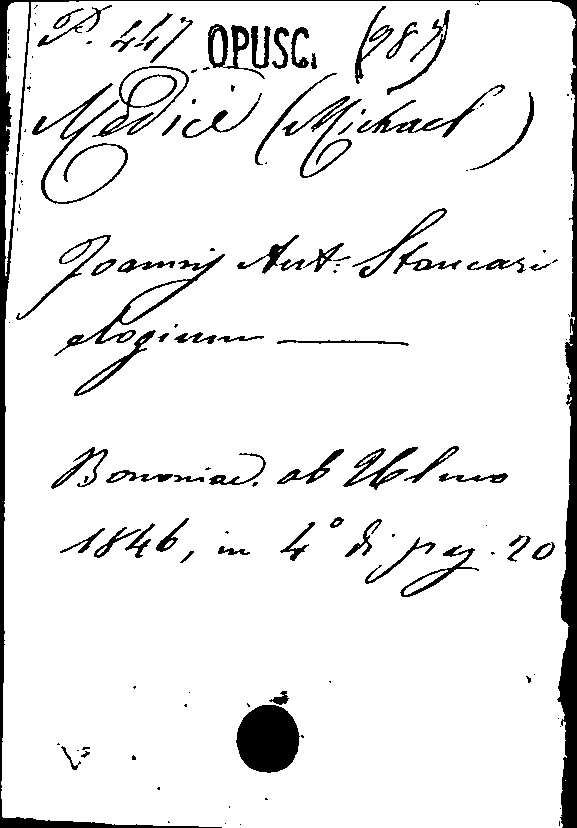 P. 447 OPUSC. (987)
Medici (Michael)
Joannis Ant: Stancari
elogium ———
Bononiae. ab Ulmo
1846, in 4° di pag. 20